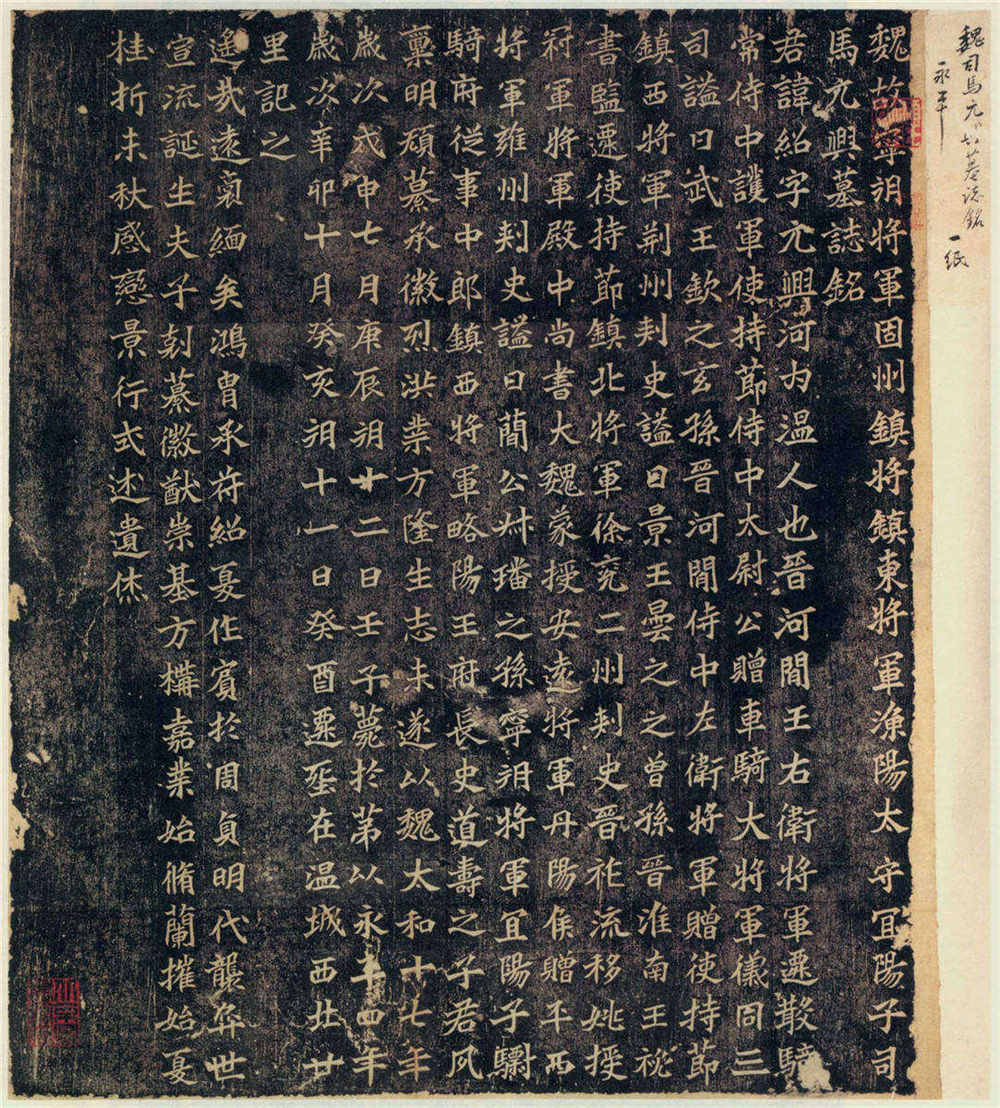 魏司馬元興墓誌銘 一紙
永平
魏故寧朔將軍固州鎮將鎮東將軍漁陽太守宜陽子司
馬元興墓誌銘
君諱紹字元興河內溫人也晉河間王右衛將軍遷散騎
常侍中護軍使持節侍中太尉公贈車騎大將軍儀同三
司謚曰武王欽之玄孫晉河間侍中左衛將軍贈使持節
鎮西將軍荊州刾史謚曰景王曇之之曾孫晉淮南王秘
書監遷使持節鎮北將軍徐兗二州刾史晉祚流移姚授
冠軍將軍殿中尚書大魏蒙授安遠將軍丹陽侯贈平西
將軍雍州刾史謚曰蕑公叔璠之孫寧朔將軍宜陽子驎
騎府從事中郎鎮西將軍略陽王府長史道壽之子君夙
稟明頎纂承徽烈洪業方隆生志未遂以魏太和十七年
歲次戊申七月庚辰朔廿二日壬子薨於苐以永平四年
歲次辛卯十月癸亥朔十一日癸酉遷塟在溫城西北廿
里記之
遙哉遠裔緬矣鴻胄承苻紹夏作賓於周貞明代襲弈世
宣流誕生夫子剋纂徽猷崇基方構嘉業始脩蘭摧始夏
桂折未秋感戀景行式述遺烋